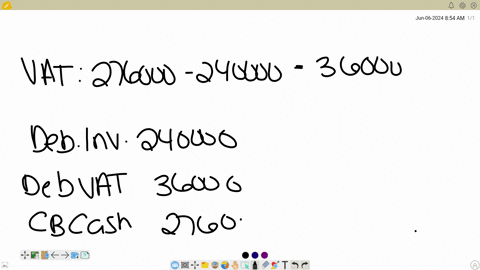 Jun-06-2024 8:54 AM 1/1
VAT: 276000 - 240000 = 36000
Deb. Inv. 240000
Deb VAT 36000
CB Cash 2760